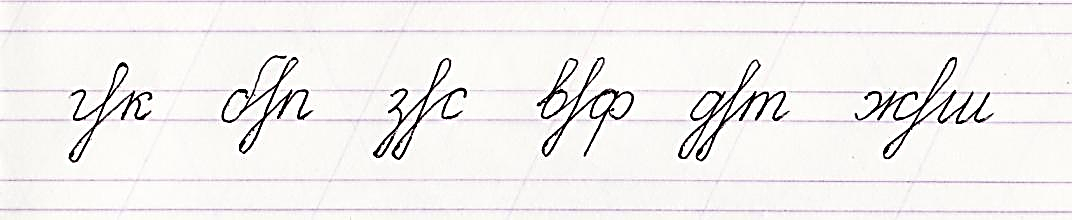 г/к б/п з/с в/ф д/т ж/ш